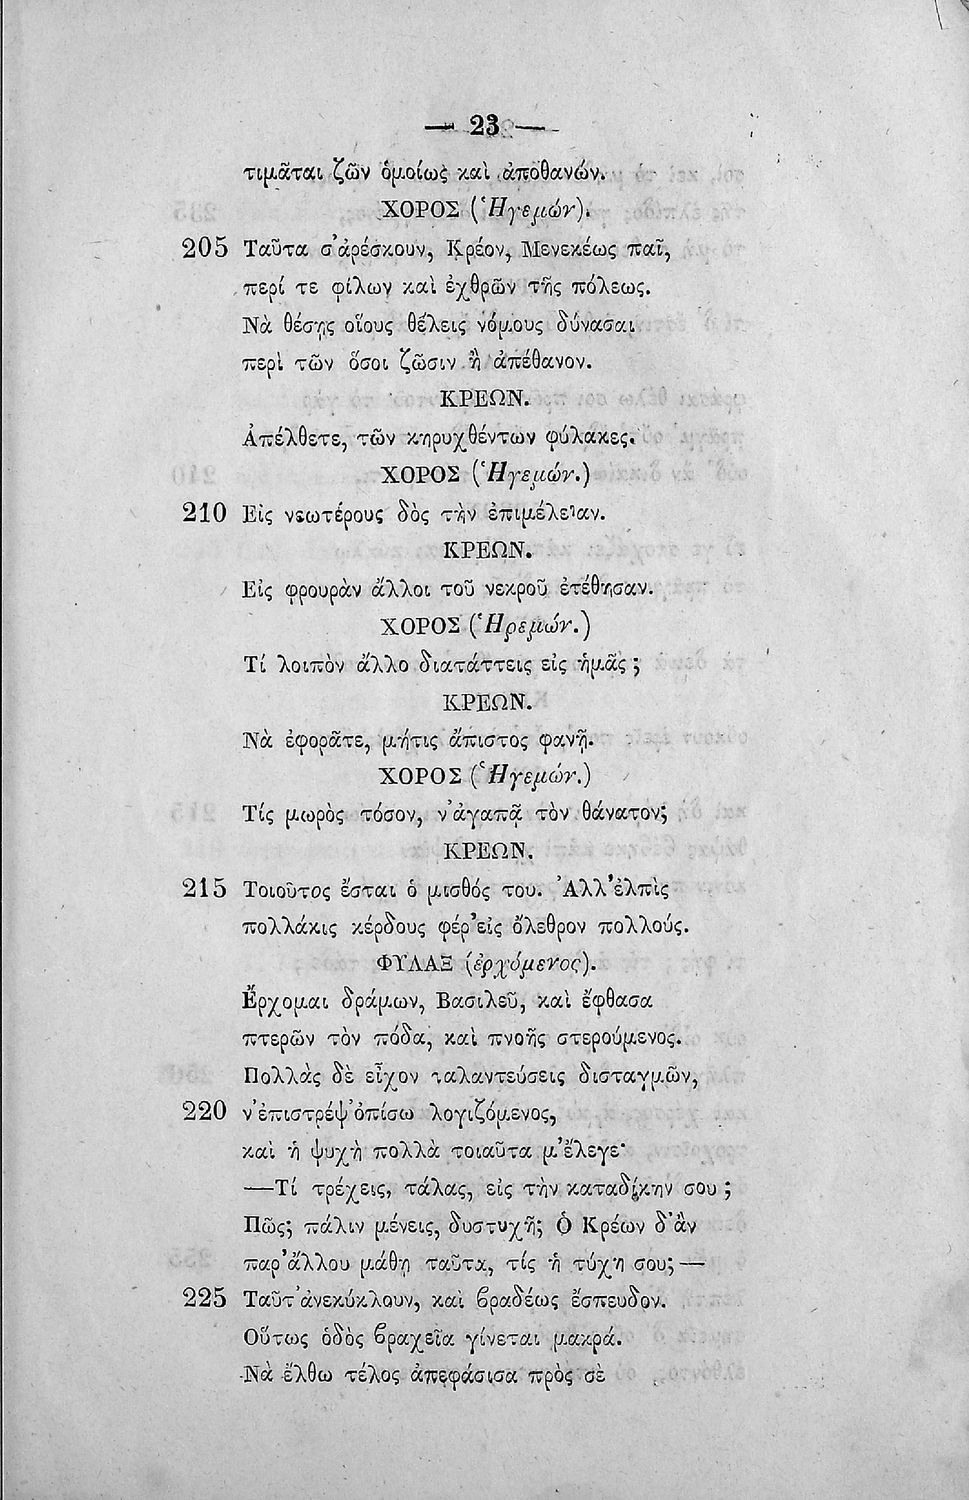 — 23 —
τιμᾶται ζῶν ὁμοίως καὶ ἀποθανών.
ΧΟΡΟΣ (Ἡγεμών).
205 Ταῦτα σ᾽ἀρέσκουν, Κρέον, Μενεκέως παῖ,
περί τε φίλων καὶ ἐχθρῶν τῆς πόλεως.
Νὰ θέσῃς οἵους θέλεις νόμους δύνασαι
περὶ τῶν ὅσοι ζῶσιν ἢ ἀπέθανον.
ΚΡΕΩΝ.
Ἀπέλθετε, τῶν κηρυχθέντων φύλακες.
ΧΟΡΟΣ (Ἡγεμών.)
210 Εἰς νεωτέρους δὸς τὴν ἐπιμέλειαν.
ΚΡΕΩΝ.
Εἰς φρουρὰν ἄλλοι τοῦ νεκροῦ ἐτέθησαν.
ΧΟΡΟΣ (Ἡρεμών.)
Τί λοιπὸν ἄλλο διατάττεις εἰς ἡμᾶς ;
ΚΡΕΩΝ.
Νὰ ἐφορᾶτε, μήτις ἄπιστος φανῇ.
ΧΟΡΟΣ (Ἡγεμών.)
Τίς μωρὸς τόσον, ν᾽ἀγαπᾷ τὸν θάνατον;
ΚΡΕΩΝ.
215 Τοιοῦτος ἔσται ὁ μισθός του. Ἀλλ᾽ἐλπὶς
πολλάκις κέρδους φέρ᾽εἰς ὄλεθρον πολλούς.
ΦΥΛΑΞ (ἐρχόμενος).
Ἔρχομαι δράμων, Βασιλεῦ, καὶ ἔφθασα
πτερῶν τὸν πόδα, καὶ πνοῆς στερούμενος.
Πολλὰς δὲ εἶχον ταλαντεύσεις δισταγμῶν,
220 ν᾽ἐπιστρέψ᾽ὀπίσω λογιζόμενος,
καὶ ἡ ψυχὴ πολλὰ τοιαῦτα μ᾽ἔλεγε·
—Τί τρέχεις, τάλας, εἰς τὴν καταδίκην σου ;
Πῶς; πάλιν μένεις, δυστυχῆ; Ὁ Κρέων δ᾽ἂν
παρ᾽ἄλλου μάθῃ ταῦτα, τίς ἡ τύχη σου;—
225 Ταῦτ᾽ἀνεκύκλουν, καὶ βραδέως ἔσπευδον.
Οὕτως ὁδὸς βραχεῖα γίνεται μακρά.
Νὰ ἔλθω τέλος ἀπεφάσισα πρὸς σὲ